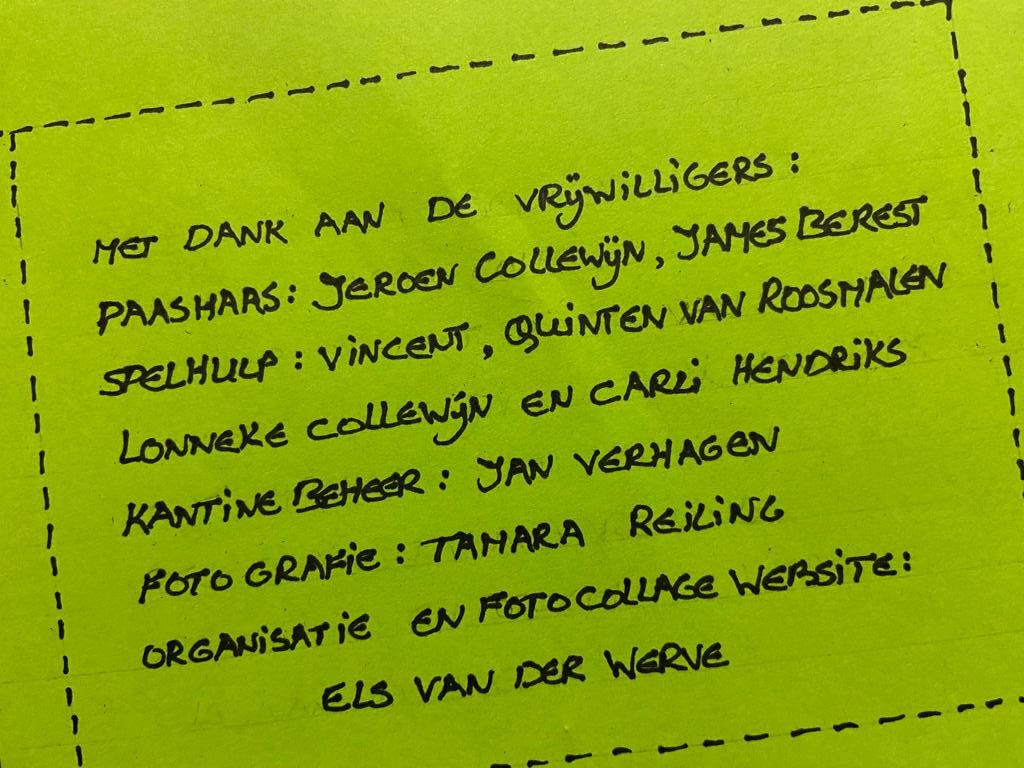 MET DANK AAN DE VRIJWILLIGERS:
PAASHAAS: JEROEN COLLEWIJN, JAMES BEREST
SPELHULP: VINCENT, QUINTEN VAN ROOSMALEN
LONNEKE COLLEWIJN EN CARLI HENDRIKS
KANTINE BEHEER: JAN VERHAGEN
FOTO GRAFIE: TAMARA REILING
ORGANISATIE EN FOTOCOLLAGE WEBSITE:
ELS VAN DER WERVE